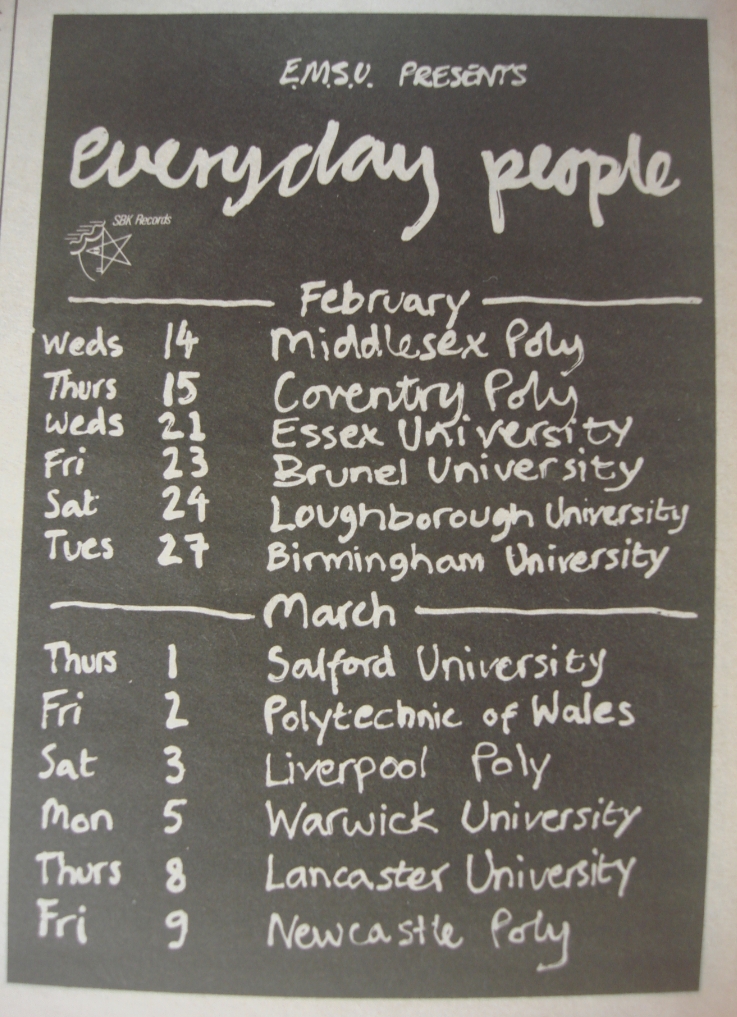 E.M.S.U. PRESENTS
everyday people
SBK Records
February
Weds 14 Middlesex Poly
Thurs 15 Coventry Poly
Weds 21 Essex University
Fri 23 Brunel University
Sat 24 Loughborough University
Tues 27 Birmingham University
March
Thurs 1 Salford University
Fri 2 Polytechnic of Wales
Sat 3 Liverpool Poly
Mon 5 Warwick University
Thurs 8 Lancaster University
Fri 9 Newcastle Poly